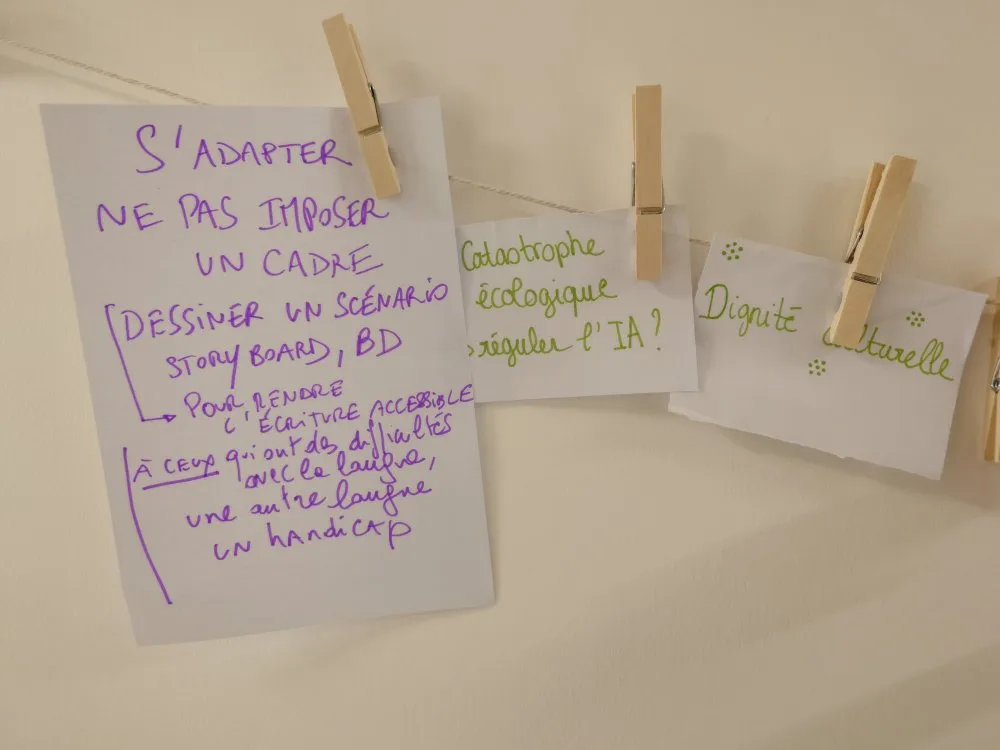 S'ADAPTER
NE PAS IMPOSER
UN CADRE
DESSINER UN SCÉNARIO
STORYBOARD, BD
POUR RENDRE
L'ÉCRITURE ACCESSIBLE
À CEUX qui ont des difficultés
avec la langue,
une autre langue
UN HANDICAP
Catastrophe
écologique
> réguler l'IA ?
Dignité culturelle